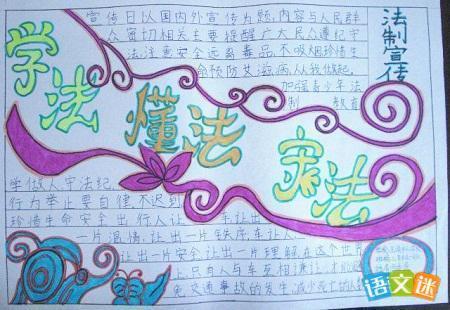 法制宣传
宣传日以国内外宣传为题,内容与人民群
众密切相关主要提醒广大民众遵纪守
法,注意安全远离毒品,不吸烟珍惜生
命预防艾滋病,从我做起。
加强青少年法
制教育
学法
懂法
守法
学做人守法纪
行为举止要自律,不迟到
珍惜生命安全出,行人让出
一片温情,让出一片秩序,车让人
让出一片安全,让出一片理解,在这个世
上,只有人与车互相谦让,才能
免交通事故的发生,减少死亡的
语文迷